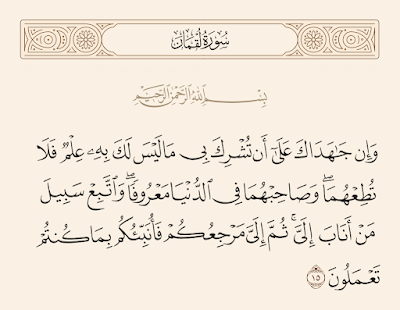 سُورَةُ لُقْمَان
بِسْمِ اللَّهِ الرَّحْمَٰنِ الرَّحِيمِ
وَإِن جَٰهَدَاكَ عَلَىٰٓ أَن تُشْرِكَ بِى مَا لَيْسَ لَكَ بِهِۦ عِلْمٌ فَلَا
تُطِعْهُمَا ۖ وَصَاحِبْهُمَا فِى ٱلدُّنْيَا مَعْرُوفًا ۖ وَٱتَّبِعْ سَبِيلَ
مَنْ أَنَابَ إِلَىَّ ۚ ثُمَّ إِلَىَّ مَرْجِعُكُمْ فَأُنَبِّئُكُم بِمَا كُنتُمْ
تَعْمَلُونَ ١٥